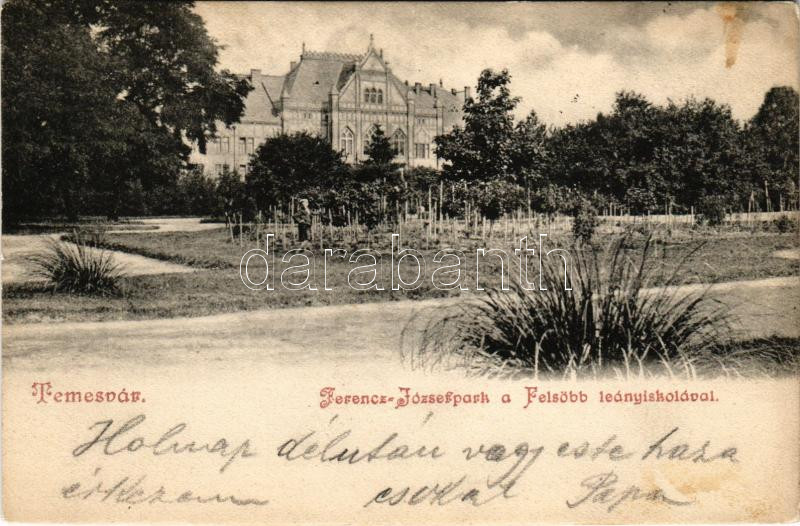 darabanth
Temesvár.
Ferencz-Józsefpark a Felsöbb leányiskolával.
Holnap délután vagy este haza
érkezem csokol Papa